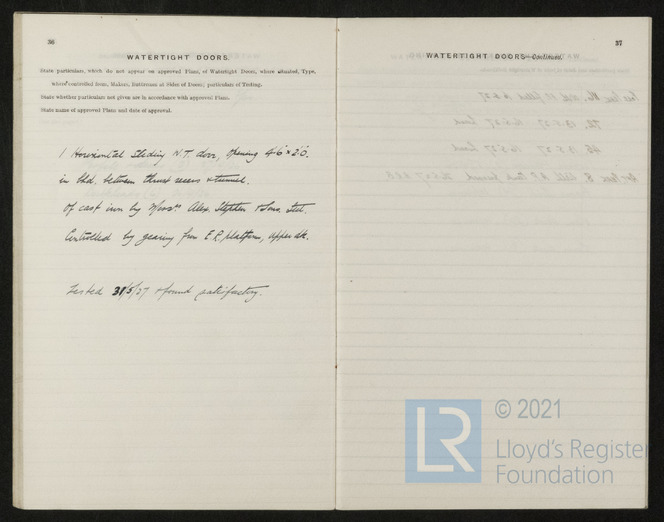 36
WATERTIGHT DOORS.
State particulars, which do not appear on approved Plans, of Watertight Doors, where situated, Type,
where controlled from, Makers, Buttresses at Sides of Doors; particulars of Testing.
State whether particulars not given are in accordance with approved Plans.
State name of approved Plans and date of approval.
1 Horizontal Sliding W.T. door, opening 4'6" x 2'0".
in bhd. between thrust recess & tunnel.
Of cast iron by Messrs Alex. Stephen & Sons, Ltd.
Controlled by gearing from E.R. platform, upper dk.
Tested 31/5/27 & found satisfactory.
37
WATERTIGHT DOORS—Continued.
LR
© 2021
Lloyd's Register
Foundation